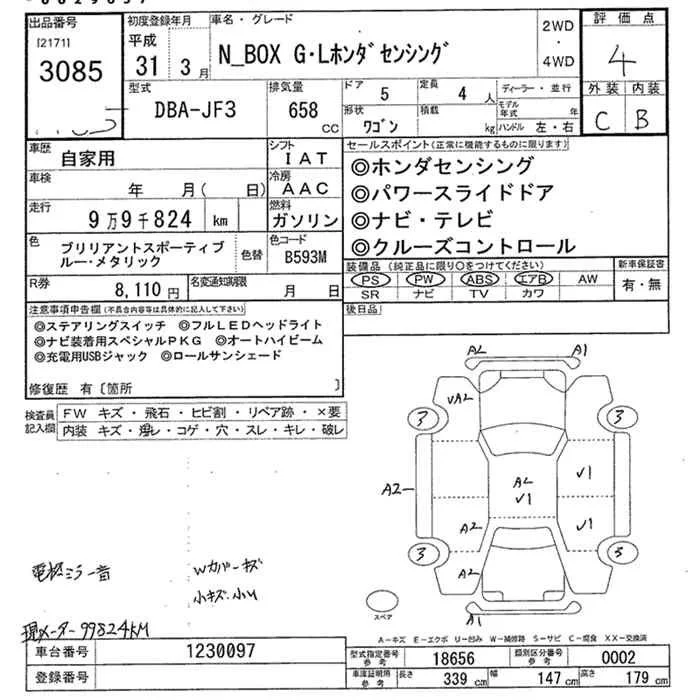 出品番号
[2171]
3085
初度登録年月
平成
31 3月
車名・グレード
N_BOX G・Lホンダセンシング
2WD
・
4WD
評価点
4
外装 内装
C B
型式
DBA-JF3
排気量
658
CC
ドア 5
定員 4人
ディーラー・並行
モデル年式 年
形状
ワゴン
積載
kg
ハンドル 左・右
車歴
自家用
シフト
IAT
車検
年 月( 日)
冷房
AAC
走行
9万9千824 km
燃料
ガソリン
色
ブリリアントスポーティブ
ルー・メタリック
色替
色コード
B593M
R券
8,110円
名変通知期限
月 日
セールスポイント(正常に機能するものに限ります)
◎ホンダセンシング
◎パワースライドドア
◎ナビ・テレビ
◎クルーズコントロール
装備品(純正品に限り○をつけてください)
PS PW ABS エアB AW
SR ナビ TV カワ
新車保証書
有・無
後日品
注意事項申告欄(不具合内容等は具体的に記入して下さい)
◎ステアリングスイッチ ◎フルLEDヘッドライト
◎ナビ装着用スペシャルPKG ◎オートハイビーム
◎充電用USBジャック ◎ロールサンシェード
修復歴 有〔箇所 〕
検査員
記入欄
FW キズ・飛石・ヒビ割・リペア跡・×要
内装 キズ・汚レ・コゲ・穴・スレ・キレ・破レ
AL A1
VAL
3 3
A2
AL
V1
V1
A2
V1
3 3
A2
A1
スペア
Wカバーキズ
小キズ.小U
現メーター99824KM
A-キズ E-エクボ U-凹み W-補修跡 S-サビ C-腐食 XX-交換済
車台番号
1230097
登録番号
型式指定番号
参考
18656
類別区分番号
参考
0002
車庫証明用
参考
長さ
339 cm
幅
147 cm
高さ
179 cm